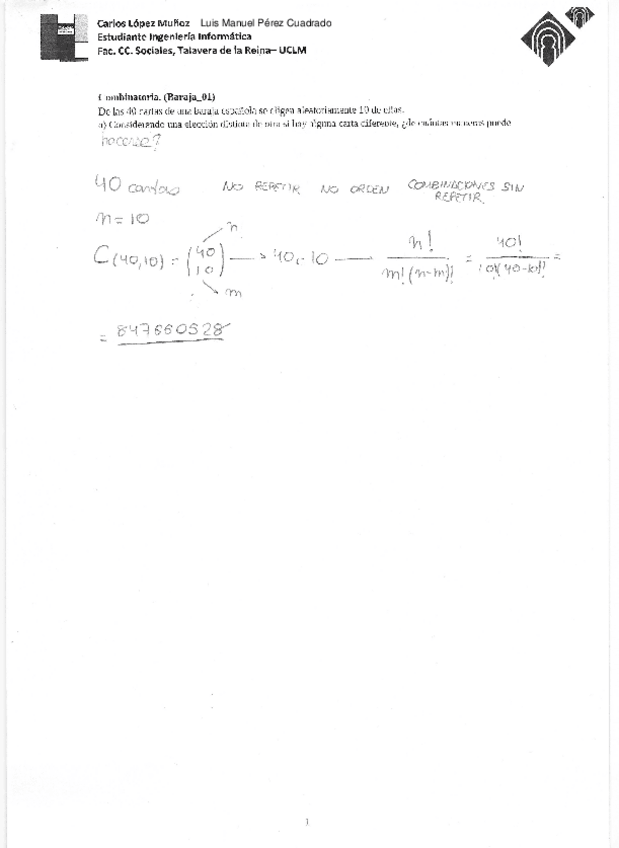 Carlos López Muñoz Luis Manuel Pérez Cuadrado
Estudiante Ingeniería Informática
Fac. CC. Sociales, Talavera de la Reina– UCLM
Combinatoria. (Baraja_01)
De las 40 cartas de una baraja española se eligen aleatoriamente 10 de ellas.
a) Considerando una elección distinta de otra si hay alguna carta diferente, ¿de cuántas maneras puede
hacerse?
40 cartas NO REPETIR NO ORDEN COMBINACIONES SIN
REPETIR.
n = 10
n
C(40,10) = (40 10) → 40 · 10 — n! / m!(n-m)! = 40! / 10!(40-10)! =
m
= 847660528
1